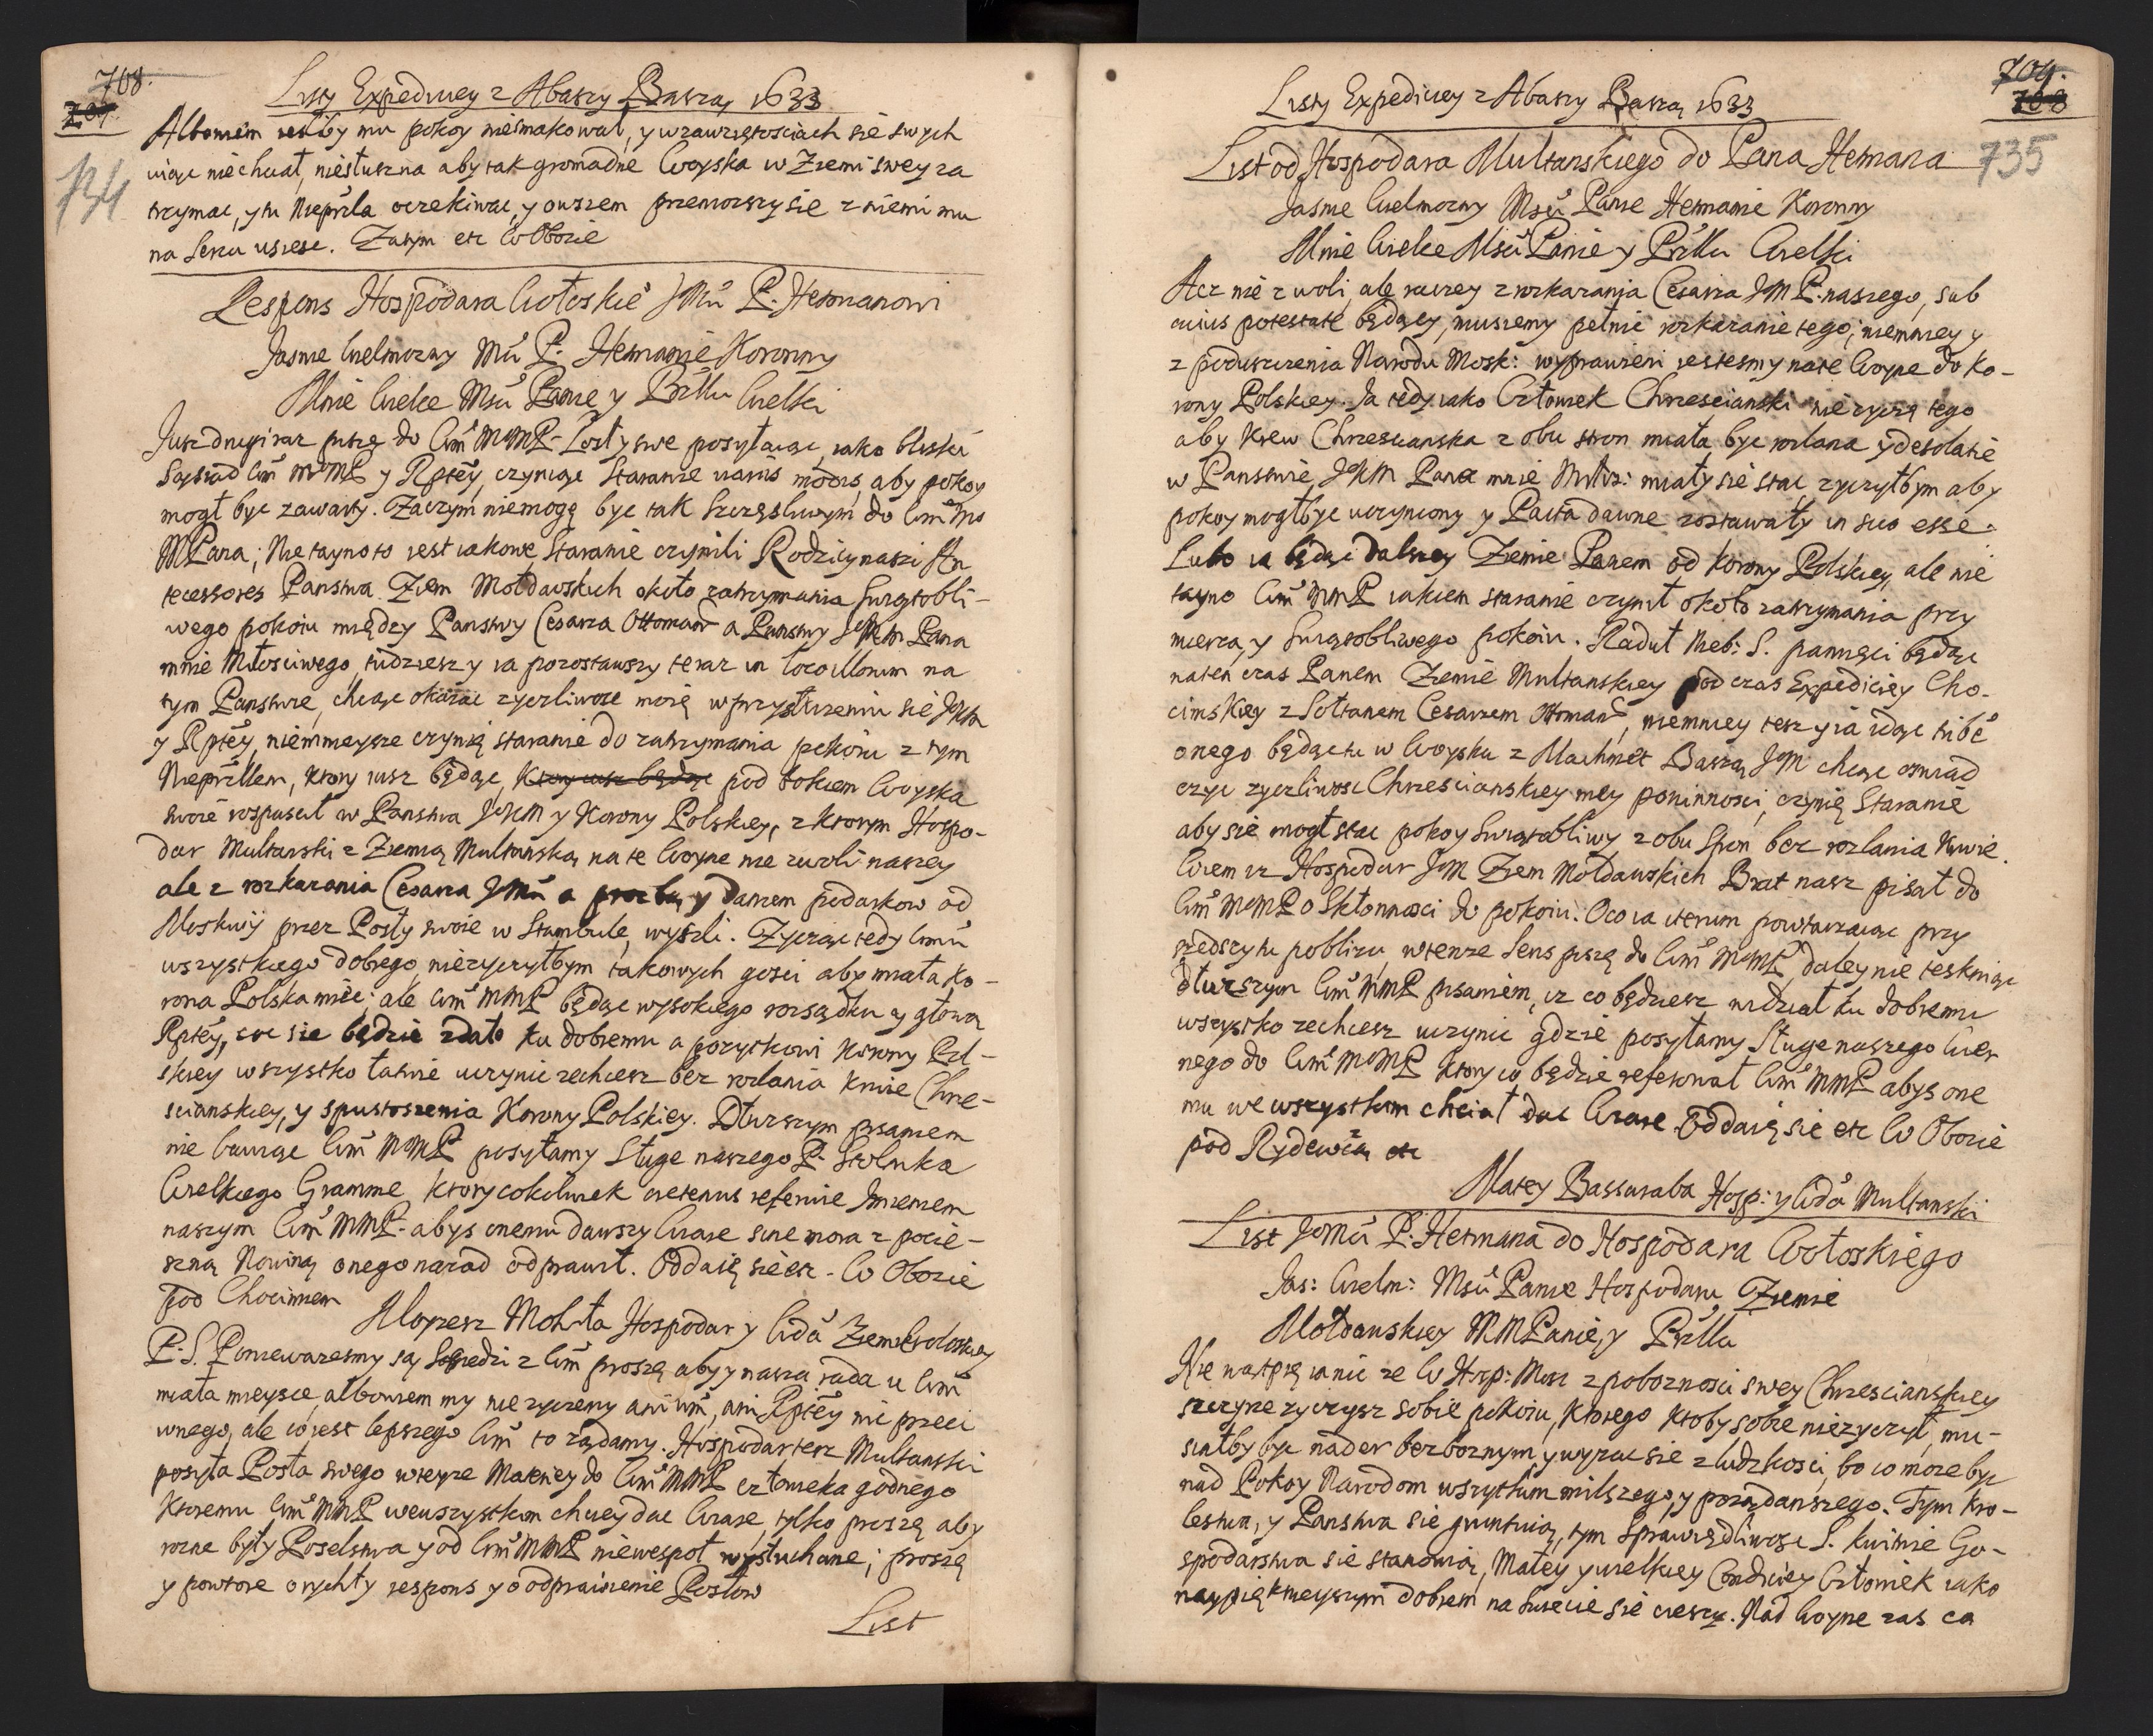 708.
707.
734
Listy Expedicyey z Abaszy Baszą 1633
Albowiem iesliby mu pokoy niesmakował, y w zawziętosciach sie swych
wiąc niechciał, niesłuszna aby tak gromadne Woyska w Ziemi swey za
trzymac, y tu Nieprzla oczekiwac, y owszem przeniozszy sie z niemi mu
na Sercu usiesc. Zatym etc W Obozie
Respons Hospodara Wołoskie° JMci P. Hetmanowi
Jasnie Wielmozny Mci P. Hetmanie Koronny
Mnie Wielce Msci Panie y Przllu Wielki
Jusz drugi raz piszę do Wm MMP Posły swe posyłaiąc, iako bliski
Sąsiad Wm MMMP y Rptey, czyniąc Staranie variis modis, aby pokoy
mogł byc zawarty. Zaczym niemogę byc tak Szczęsliwym do Wm Mo
MPana; Nie tayno to iest iakowe Staranie czynili Rodzicy naszi An
tecessores Panstwa Ziem Mołdawskich około zatrzymania Swiątobli-
wego pokoiu między Panstwy Cesarza Ottoman a Panstwy JKM Pana
mnie Miłosciwego, tudziesz y ia pozostawszy teraz in loco illorum na
tym Panstwie, chcąc okazac zyczliwosc moię w przysłuzeniu sie JKM
y Rptey, niemnieysze czynię staranie do zatrzymania pokoiu z tym
Nieprzllem, ktory iusz będąc, ktory iusz będąc pod bokiem Woyska
swoie rospuscił w Panstwa JKM y Korony Polskiey, z ktorym Hospo-
dar Multanski z Ziemią Multanską na te Woyne nie z woli naszey
ale z rozkazania Cesarza JMci a prozbą y daniem podarkow od
Moskwij przez Posły swoie w Stambule, wyszli. Zycząc tedy Wmci
wszystkiego dobrego, niezyczyłbym takowych gosci aby miała Ko-
rona Polska miec; ale Wm MMP będąc wysokiego rozsądku y głową
Rptey, coc sie będzie zdało ku dobremu a pozytkowi Korony Pol-
skiey wszystko łatwie uczynic zechcesz bez rozlania krwie Chrze-
scianskiey, y spustoszenia Korony Polskiey. Dłuzszym pisaniem
nie bawiąc Wm MMMP posyłamy Sługe naszego P. Stolnika
Wielkiego Gramme, ktory cokolwiek oretenus referuie Imieniem
naszym Wm MMP. abys onemu dawszy Wiarę sine mora z pocie-
szną Nowiną onego nazad odprawił. Oddaię się etc. W Obozie
pod Chocimem
Moyzesz Mohiła Hospodar y Wda Ziem Wołoskiey
P.S. Poniewazesmy są Sąsiedzi z Wm proszę aby y nasza rada u Wm
miała mieysce, albowiem my nie zyczemy ani Wm, ani Rptey nic przeci
wnego, ale co iest lepszego Wm to ządamy. Hospodar tesz Multanski
posyła Posła swego w teyze Materiey do Wm MMP człowieka godnego
Ktoremu Wm MMP we wszystkim chciey dac Wiarę, tylko proszę aby
rozne były Poselstwa y od Wm MMP niewespoł wysłuchane; proszę
y powtore o rychły respons y o odprawienie Posłow
List
709.
708
735
Listy Expedicyey z Abaszy Baszą 1633
List od Hospodara Multanskiego do Pana Hetmana
Jasnie Wielmozny Msci Panie Hetmanie Koronny
Mnie Wielce Msci Panie y Przllu Wielki
Acz nie z woli, ale raczey z rozkazania Cesarza JM P. naszego, sub
cuius potestate będący, musiemy pełnic rozkazanie tego; niemniey y
z poduszczenia Narodu Mosk: wyprawieni iestesmy na te Woyne do Ko-
rony Polskiey. Ja tedy iako Człowiek Chrzescianski nie zyczę tego
aby krew Chrzescianska z obu stron miała byc rozlana y desolatie
w Panstwie JKM Pana mnie Miłos: miały sie stac, zyczyłbym aby
pokoy mogł byc uczyniony y Pacta dawne zostawały in suo esse.
Lubo ia będąc dalszey Ziemie Panem od Korony Polskiey, ale nie
tayno Wm MMP iakiem staranie czynił około zatrzymania przy
mierza, y Swiątobliwego pokoiu. Raduł Nieb: S. pamięci będąc
na ten czas Panem Ziemie Multanskiey pod czas Expediciey Cho-
cimskiey z Sołtanem Cesarzem Ottman, niemniey tesz y ia idąc tibe
onego będąc tu w Woysku z Machmet Baszą JM chcąc oswiad
czyc zyczliwosc Chrzescianskiey mey powinnosci, czynię Staranie
aby sie mogł stac pokoy Swiątobliwy z obu Stron bez rozlania Krwie.
Wiem isz Hospodar JM Ziem Mołdawskich Brat nasz pisał do
Wm MMMP o Skłonnosci do pokoiu. Oco ia iterum powtarzaiąc przy
szedszy tu poblizu, w tenze Sens piszę do Wm MMMP daley nie teskniąc
dłuzszym Wm MMP pisaniem, isz co będziesz widział ku dobremu
wszystko zechcesz uczynic gdzie posyłamy Sługe naszego Wier
nego do Wm MMMP ktory co będzie referował Wm MMP abys one
mu we wszystkim chciał dac Wiarę. Oddaię się etc W Obozie
pod Rydewią etc
Matey Bassaraba Hosp: y Wda Multanski
List JeoMci P. Hetmana do Hospodara Wołoskiego
Jas: Wielm: Msci Panie Hospodaru Ziemie
Mołdawskiey MMPanie, y Przllu
Nie wątpię ia nic ze W Hosp: Mosc z poboznosci swey Chrzescianskiey
szczyrze zyczysz sobie pokoiu, ktorego ktoby sobie niezyczył, mu-
siałby byc nader bezboznym, y wyzuc sie z ludzkosci, bo co moze byc
nad Pokoy Narodom wszytkim milszego, y poządanszego. Tym Kro-
lestwa, y Panstwa sie gruntuią, tym Sprawiedliwosc S. kwitnie Go-
spodarstwa sie stanowią, Małey y wielkiey Condiciey Człowiek iako
naypięknieyszym dobrem na Swiecie sie cieszy. Nad Woyne zas co